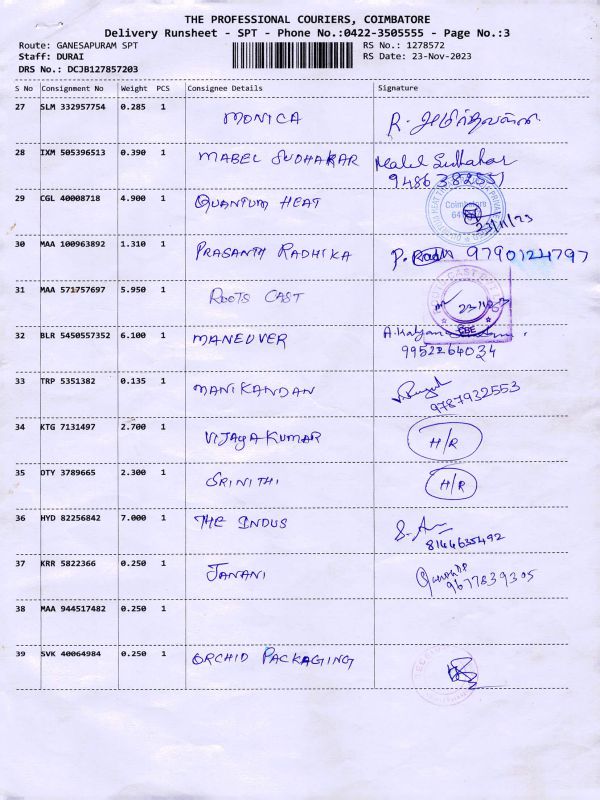 THE PROFESSIONAL COURIERS, COIMBATORE
Delivery Runsheet - SPT - Phone No.:0422-3505555 - Page No.:3
Route: GANESAPURAM SPT RS No.: 1278572
Staff: DURAI RS Date: 23-Nov-2023
DRS No.: DCJB127857203
S No Consignment No Weight PCS Consignee Details Signature
27 SLM 332957754 0.285 1 MONICA R.
28 IXM 505396513 0.390 1 MABEL SUDHAKAR Mabel Sudhakar
9486382551
29 CGL 40008718 4.900 1 QUANTUM HEAT Coimbatore
23/11/23
30 MAA 100963892 1.310 1 PRASANTH RADHIKA P. 9790124797
31 MAA 571757697 5.950 1 ROOTS CAST CBE
32 BLR 5450557352 6.100 1 MANEUVER A.
9952264034
33 TRP 5351382 0.135 1 MANIKANDAN
9787932553
34 KTG 7131497 2.700 1 VIJAYA KUMAR H/R
35 OTY 3789665 2.300 1 SRINITHI H/R
36 HYD 82256842 7.000 1 THE INDUS
8144635492
37 KRR 5822366 0.250 1 JANANI
9677839305
38 MAA 944517482 0.250 1
39 SVK 40064984 0.250 1 ORCHID PACKAGING